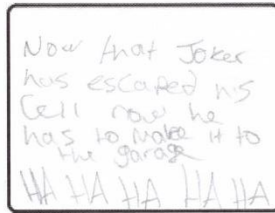 Now that Joker
has escaped his
Cell now he
has to make it to
the garage
HA HA HA HA HA